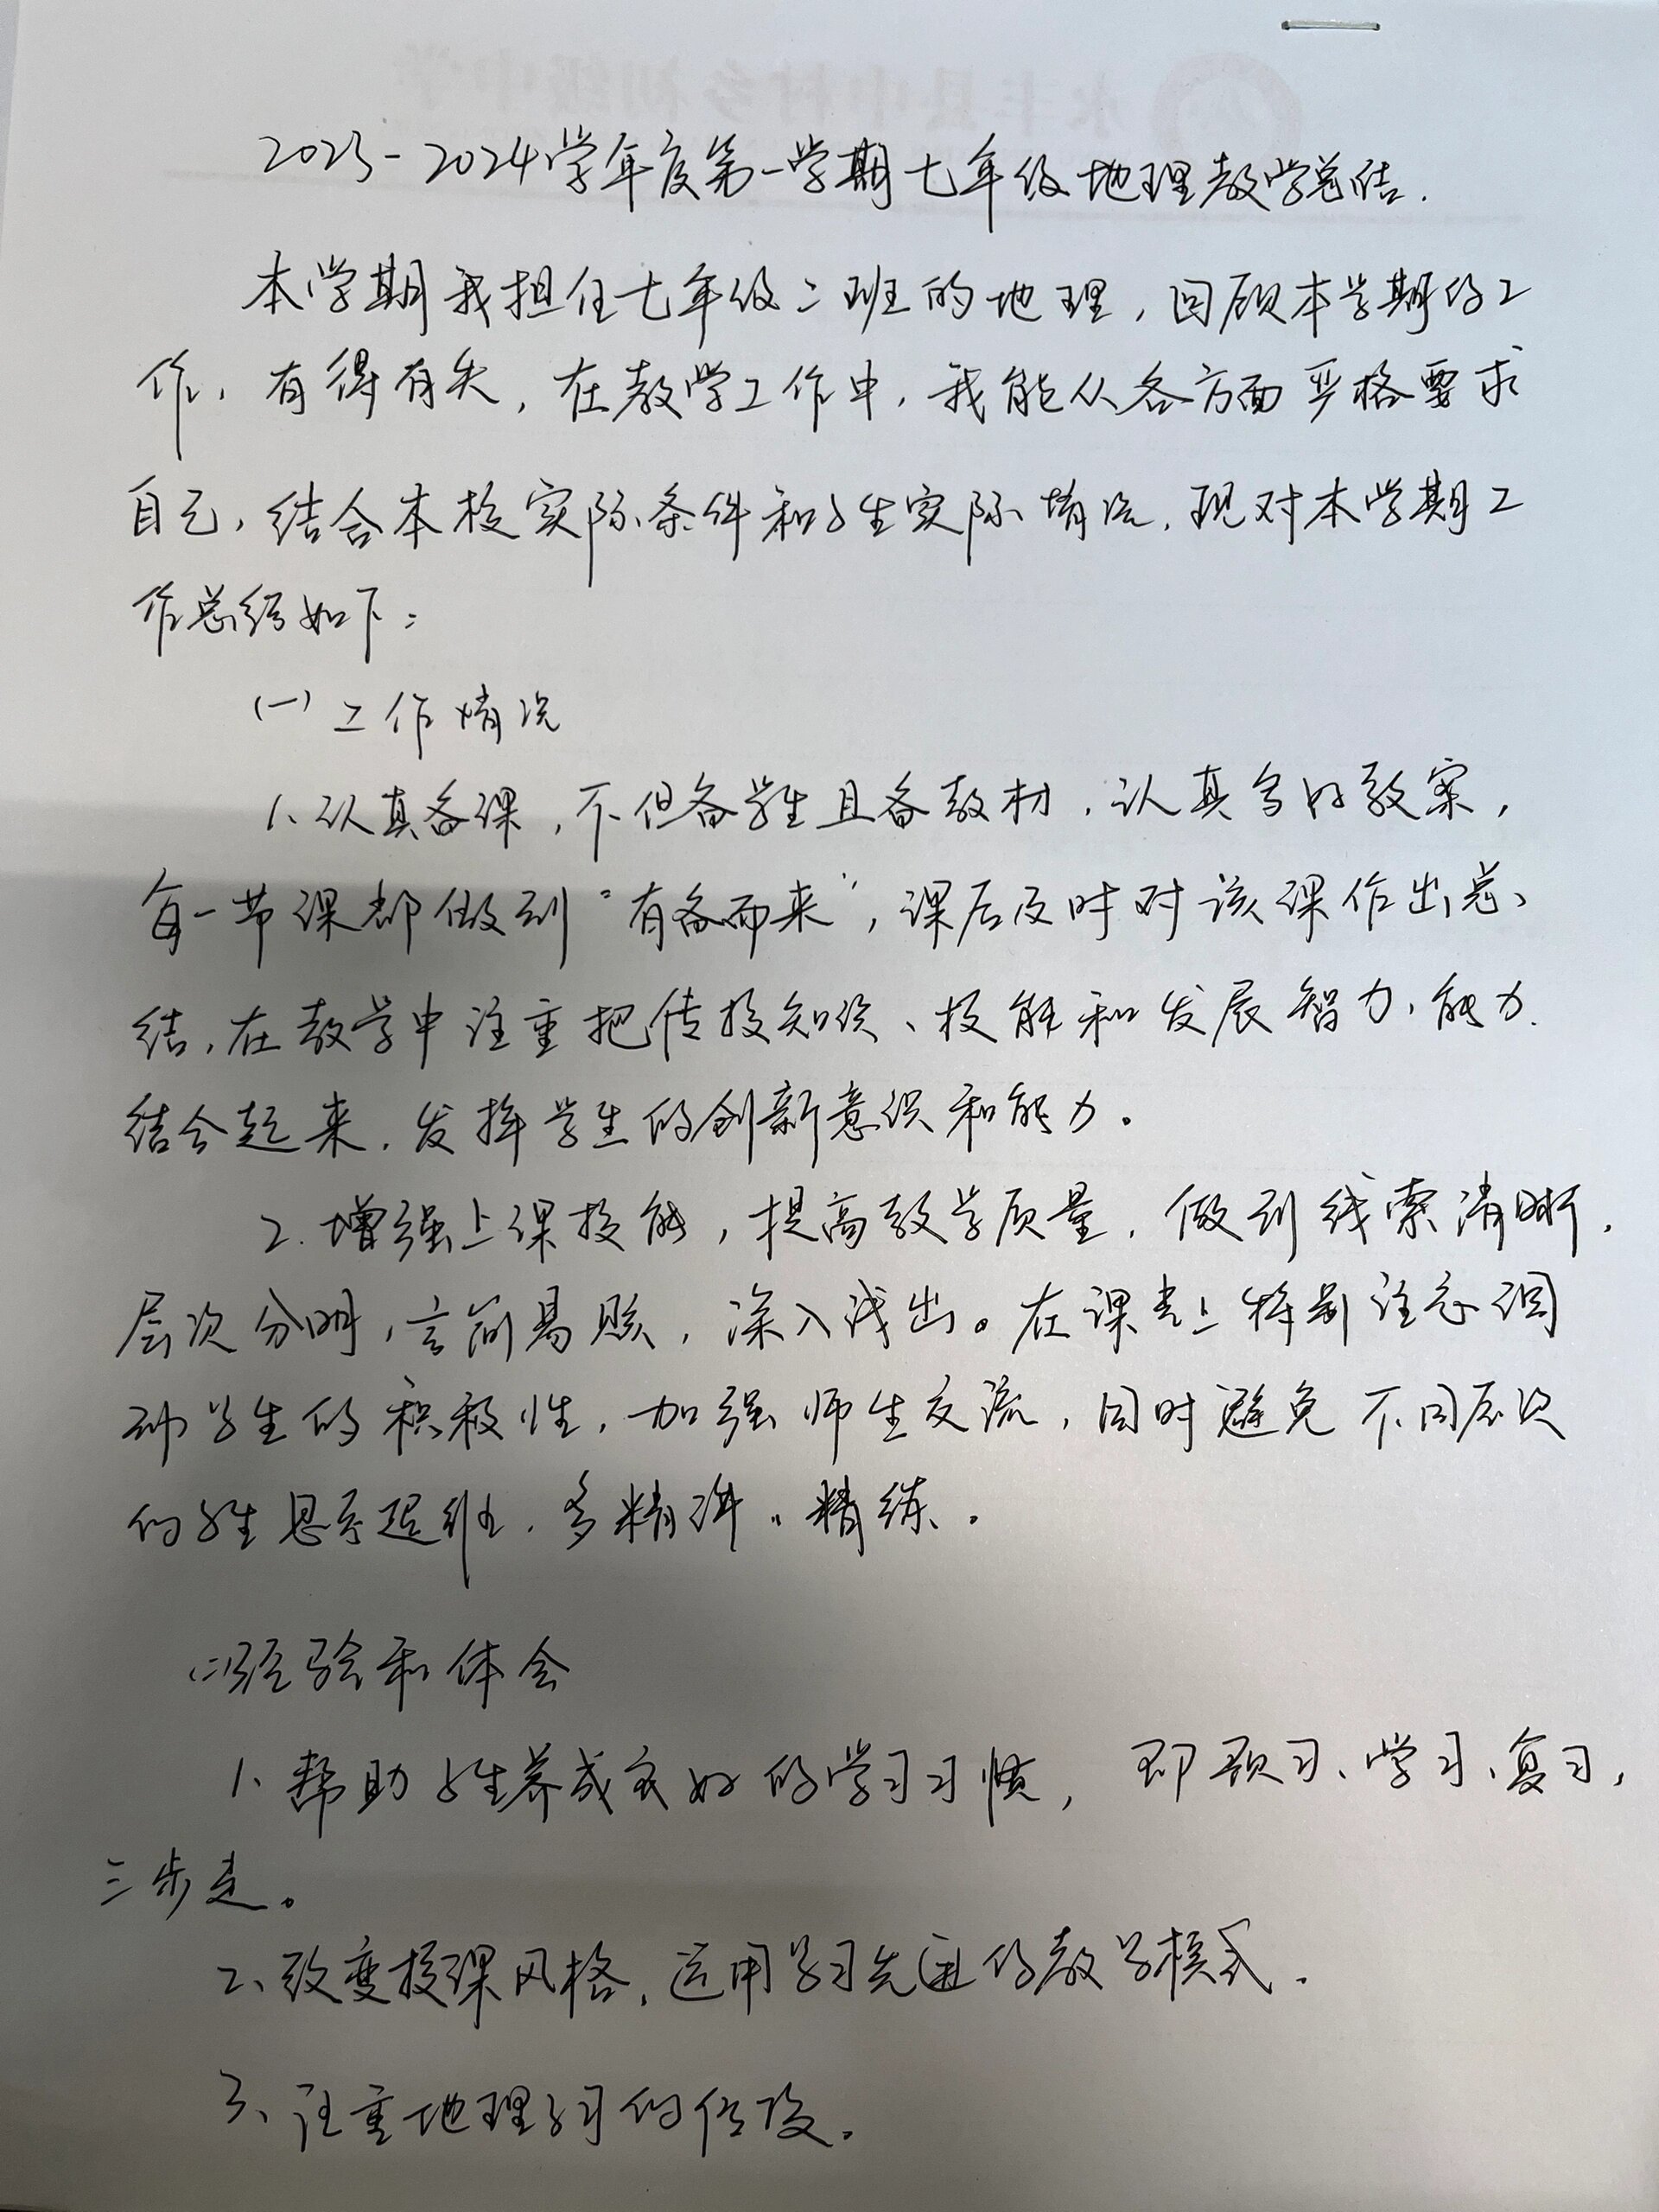 2023-2024学年度第一学期七年级地理教学总结.
本学期我担任七年级二班的地理,回顾本学期的工
作,有得有失,在教学工作中,我能从各方面严格要求
自己,结合本校实际条件和学生实际情况,现对本学期工
作总结如下:
(一)工作情况
1、认真备课,不但备学生且备教材,认真写好教案,
每一节课都做到“有备而来”,课后及时对该课作出总
结,在教学中注重把传授知识、技能和发展智力、能力
结合起来,发挥学生的创新意识和能力。
2.增强上课技能,提高教学质量,做到线索清晰,
层次分明,言简易赅,深入浅出。在课堂上特别注意调
动学生的积极性,加强师生交流,同时避免不同层次
的学生思,多精讲。精练。
(二)经验和体会
1、帮助学生养成良好的学习习惯, 即预习、学习、复习,
三步走。
2、改变授课风格,运用学习先进的教学模式.
3、注重地理学习的